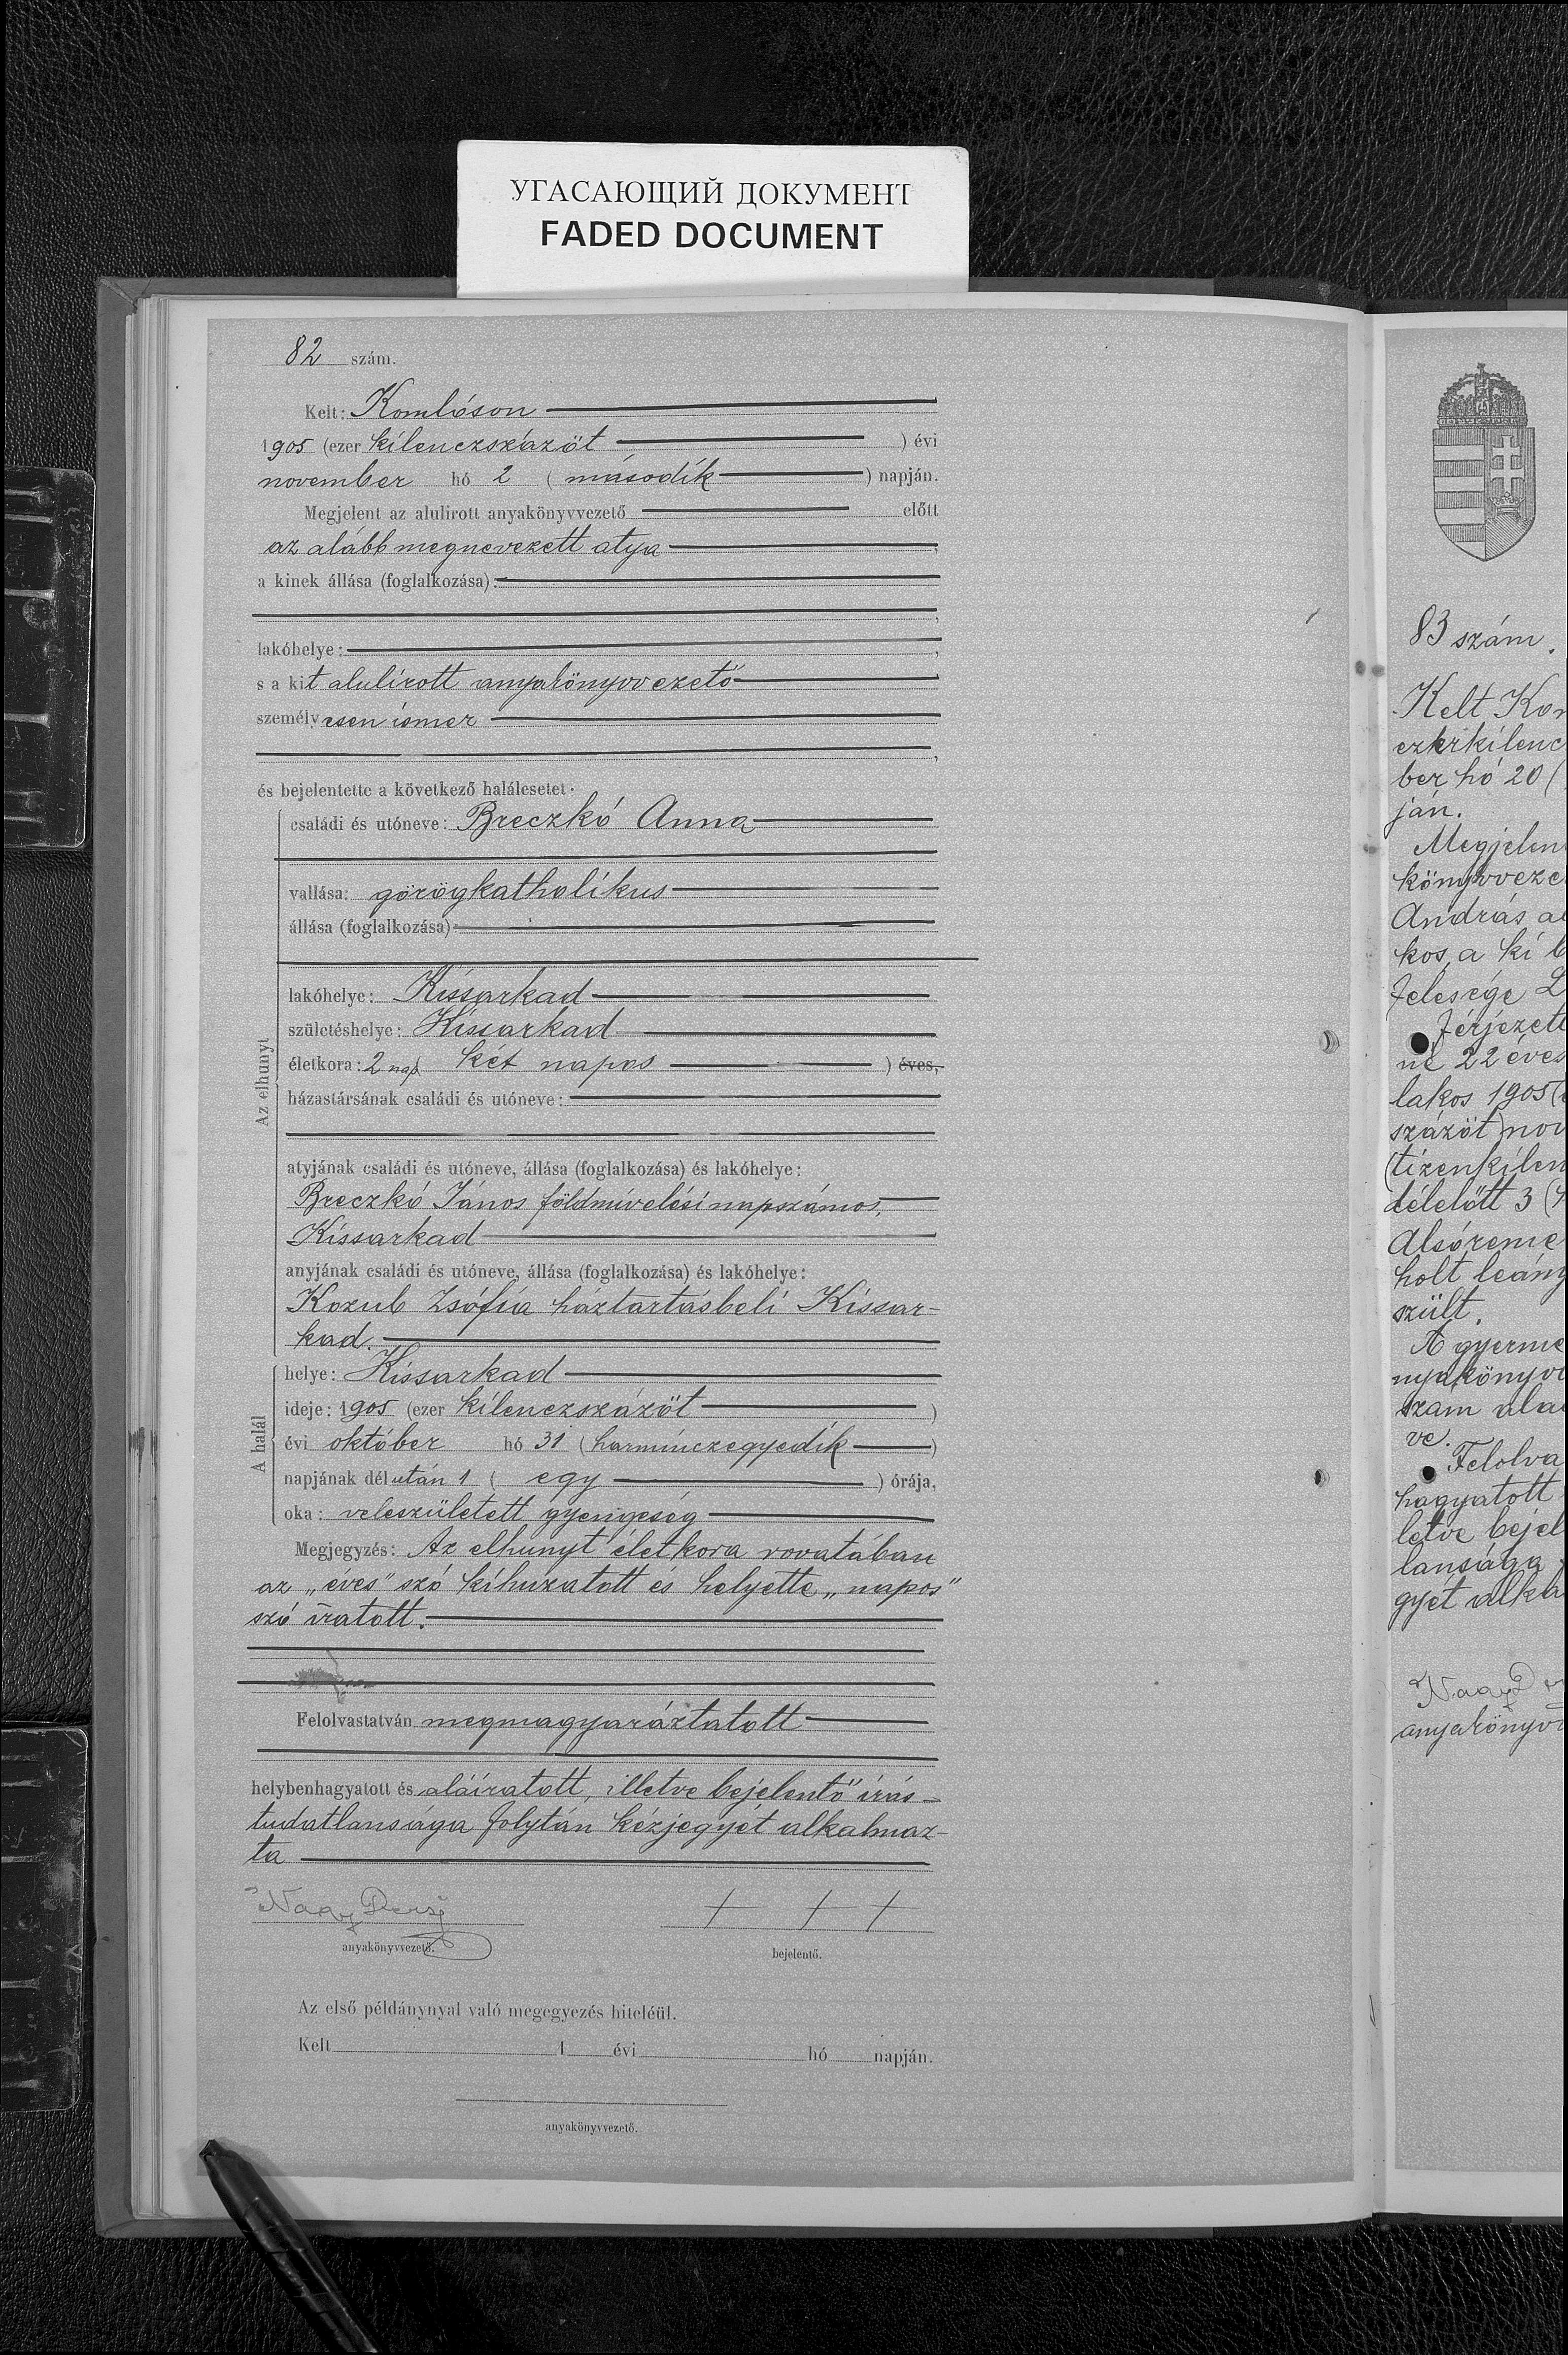 УГАСАЮЩИЙ ДОКУМЕНТ
FADED DOCUMENT
82 szám.
Kelt: Komlóson
1905 (ezer kilenczszázöt ) évi
november hó 2 (második ) napján.
Megjelent az alulirott anyakönyvvezető előtt
az alább megnevezett atya,
a kinek állása (foglalkozása):
lakóhelye:
s a kit alulírott anyakönyvvezető
személyesen ismer
és bejelentette a következő halálesetet:
Az elhunyt
családi és utóneve: Breczkó Anna
vallása: görögkatholikus
állása (foglalkozása):
lakóhelye: Kissarkad
születéshelye: Kissarkad
életkora: 2 nap két napos ) éves,
házastársának családi és utóneve:
atyjának családi és utóneve, állása (foglalkozása) és lakóhelye:
Breczkó János földmívelési napszámos,
Kissarkad
anyjának családi és utóneve, állása (foglalkozása) és lakóhelye:
Kozub Zsófia háztartásbeli Kissar-
kad.
A halál
helye: Kissarkad
ideje: 1905 (ezer kilenczszázöt )
évi október hó 31 (harminczegyedik )
napjának délután 1 ( egy ) órája,
oka: veleszületett gyengeség
Megjegyzés: Az elhunyt életkora rovatában
az „éves" szó kihúzatott és helyette „napos"
szó íratott.
Felolvastatván megmagyaráztatott
helybenhagyatott és aláíratott, illetve bejelentő írás-
tudatlansága folytán kézjegyét alkalmaz-
ta
Nagy + + +
anyakönyvvezető. bejelentő.
Az első példánynyal való megegyezés hiteléül.
Kelt 1 évi hó napján.
anyakönyvvezető.
83 szám.
Kelt Kom
ezerkilenc
ber hó 20 (
ján.
Megjelen
könyvveze
András al
kos, a ki b
felesége L
férjezett
né 22 éves
lakos 1905 (
százöt) nov
(tizenkilen
délelőtt 3 (
Alsóreme
holt leány
szült.
A gyerme
nyakönyv
szám ala
ve.
Felolva
hagyatott
letve bejel
lansága
gyét alka
Nagy D
anyakönyv